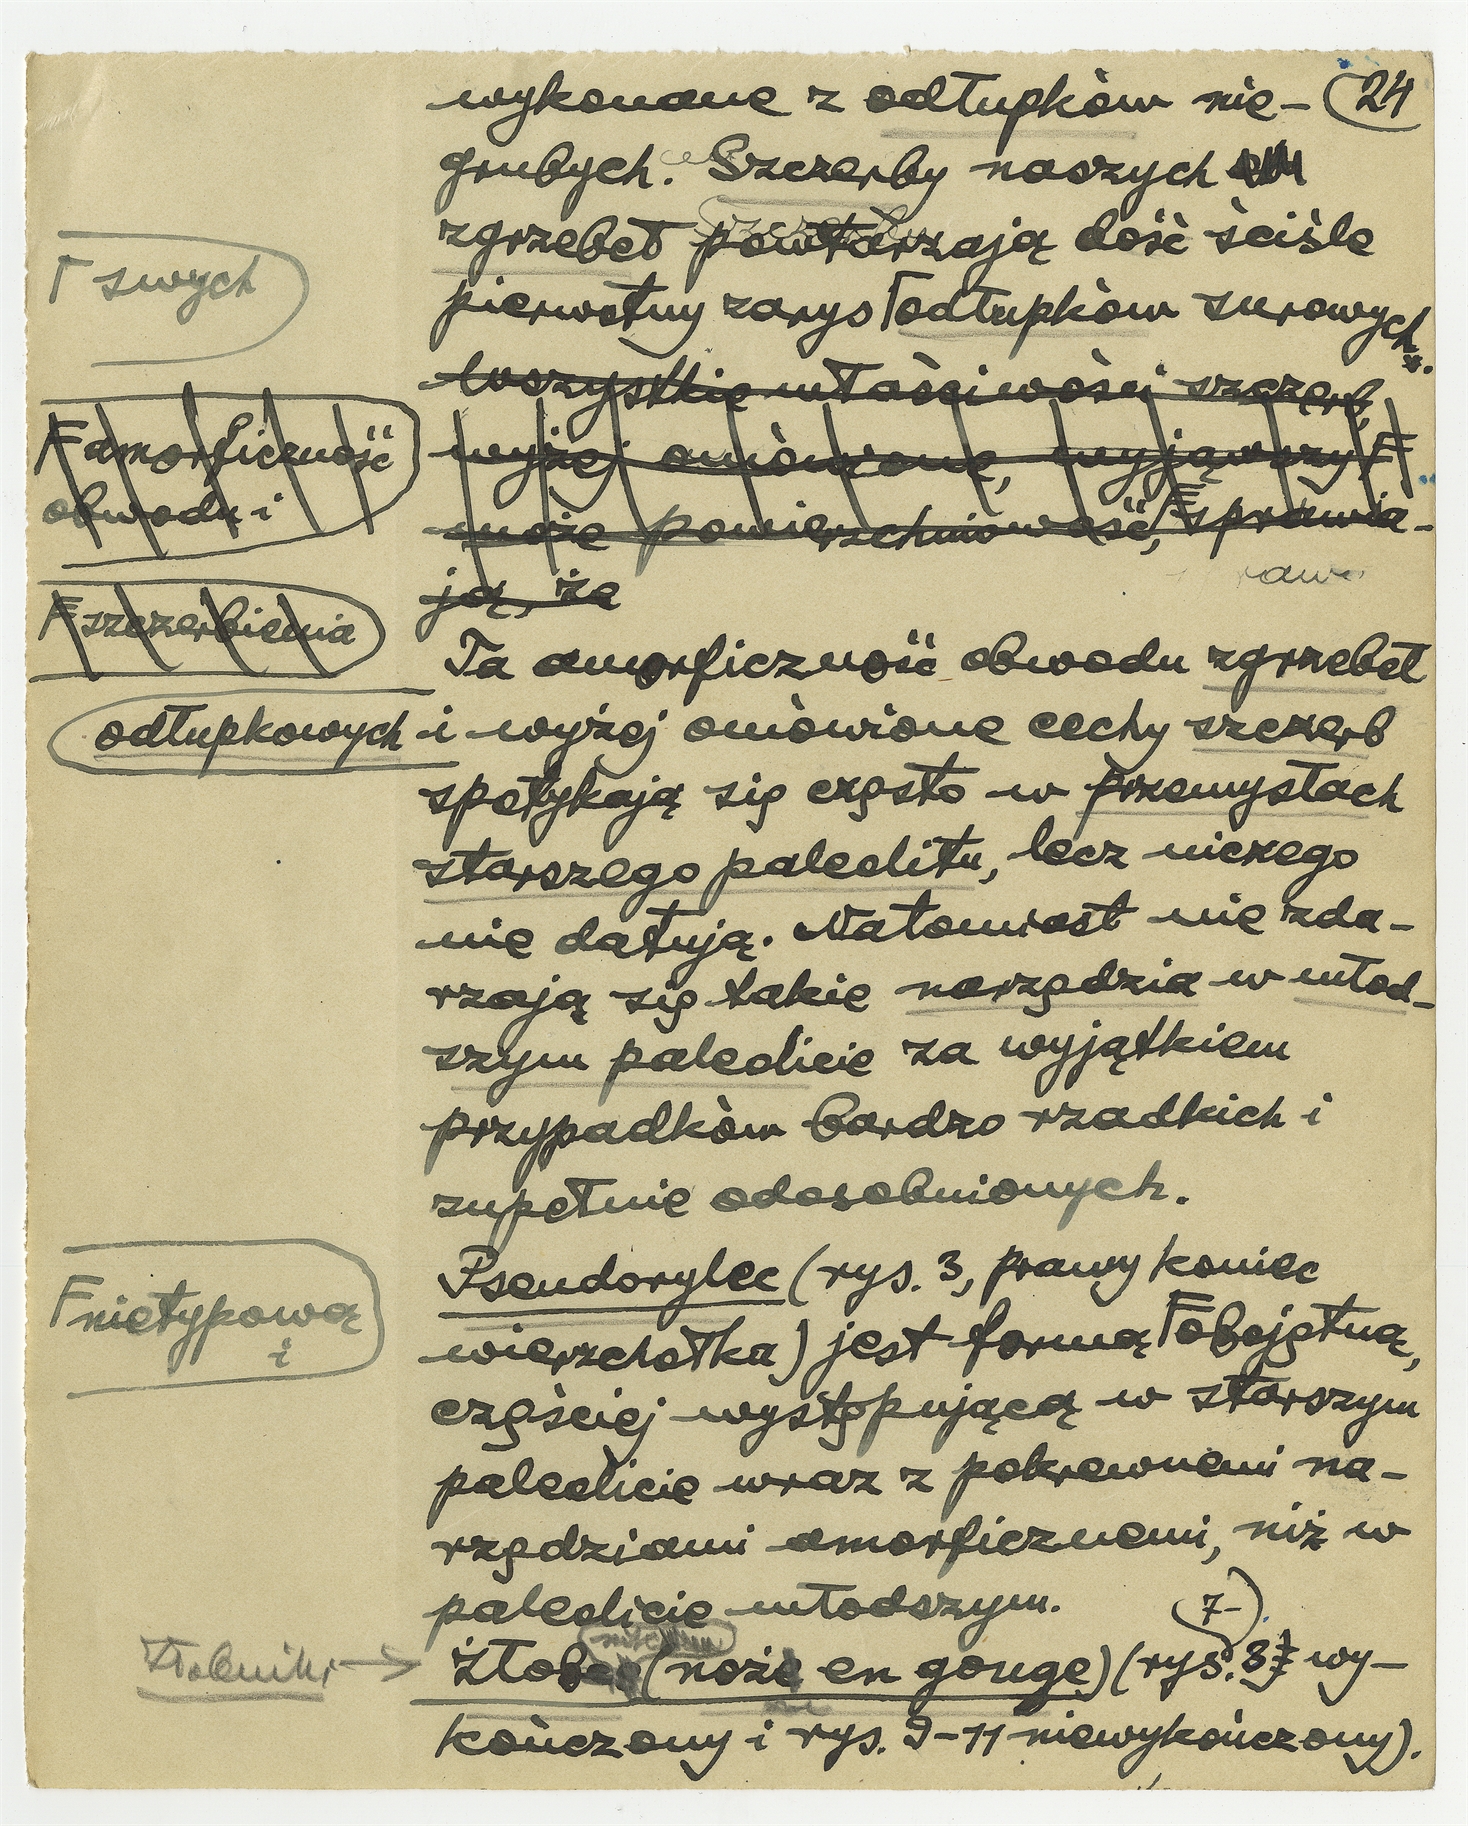 24
wykonane z odłupków nie-
grubych. Szczerby naszych
zgrzebeł powtarzają dość ściśle
pierwotny zarys Γ odłupków surowych.
Γ swych
wszystkie właściwości szczerb,
wyżej omówione, wyjąwszy F
może powierzchniowość, F sprawia-
ją, że
F amorficzność
obwodu i
F szczerbienia
Ta amorficzność obwodu zgrzebeł
odłupkowych i wyżej omówione cechy szczerb
spotykają się często w przemysłach
starszego paleolitu, lecz niczego
nie datują. Natomiast nie zda-
rzają się takie narzędzia w młod-
szym paleolicie za wyjątkiem
przypadków bardzo rzadkich i
zupełnie odosobnionych.
Pseudorylec (rys. 3, prawy koniec
wierzchołka) jest formą F obojętną,
F nietypową
i
częściej występującą w starszym
paleolicie wraz z pokrewnemi na-
rzędziami amorficznemi, niż w
paleolicie młodszym.
7-
Żłobniki → (noże en gouge) (rys. 8 wy-
kończony i rys. 9-11 niewykończony).